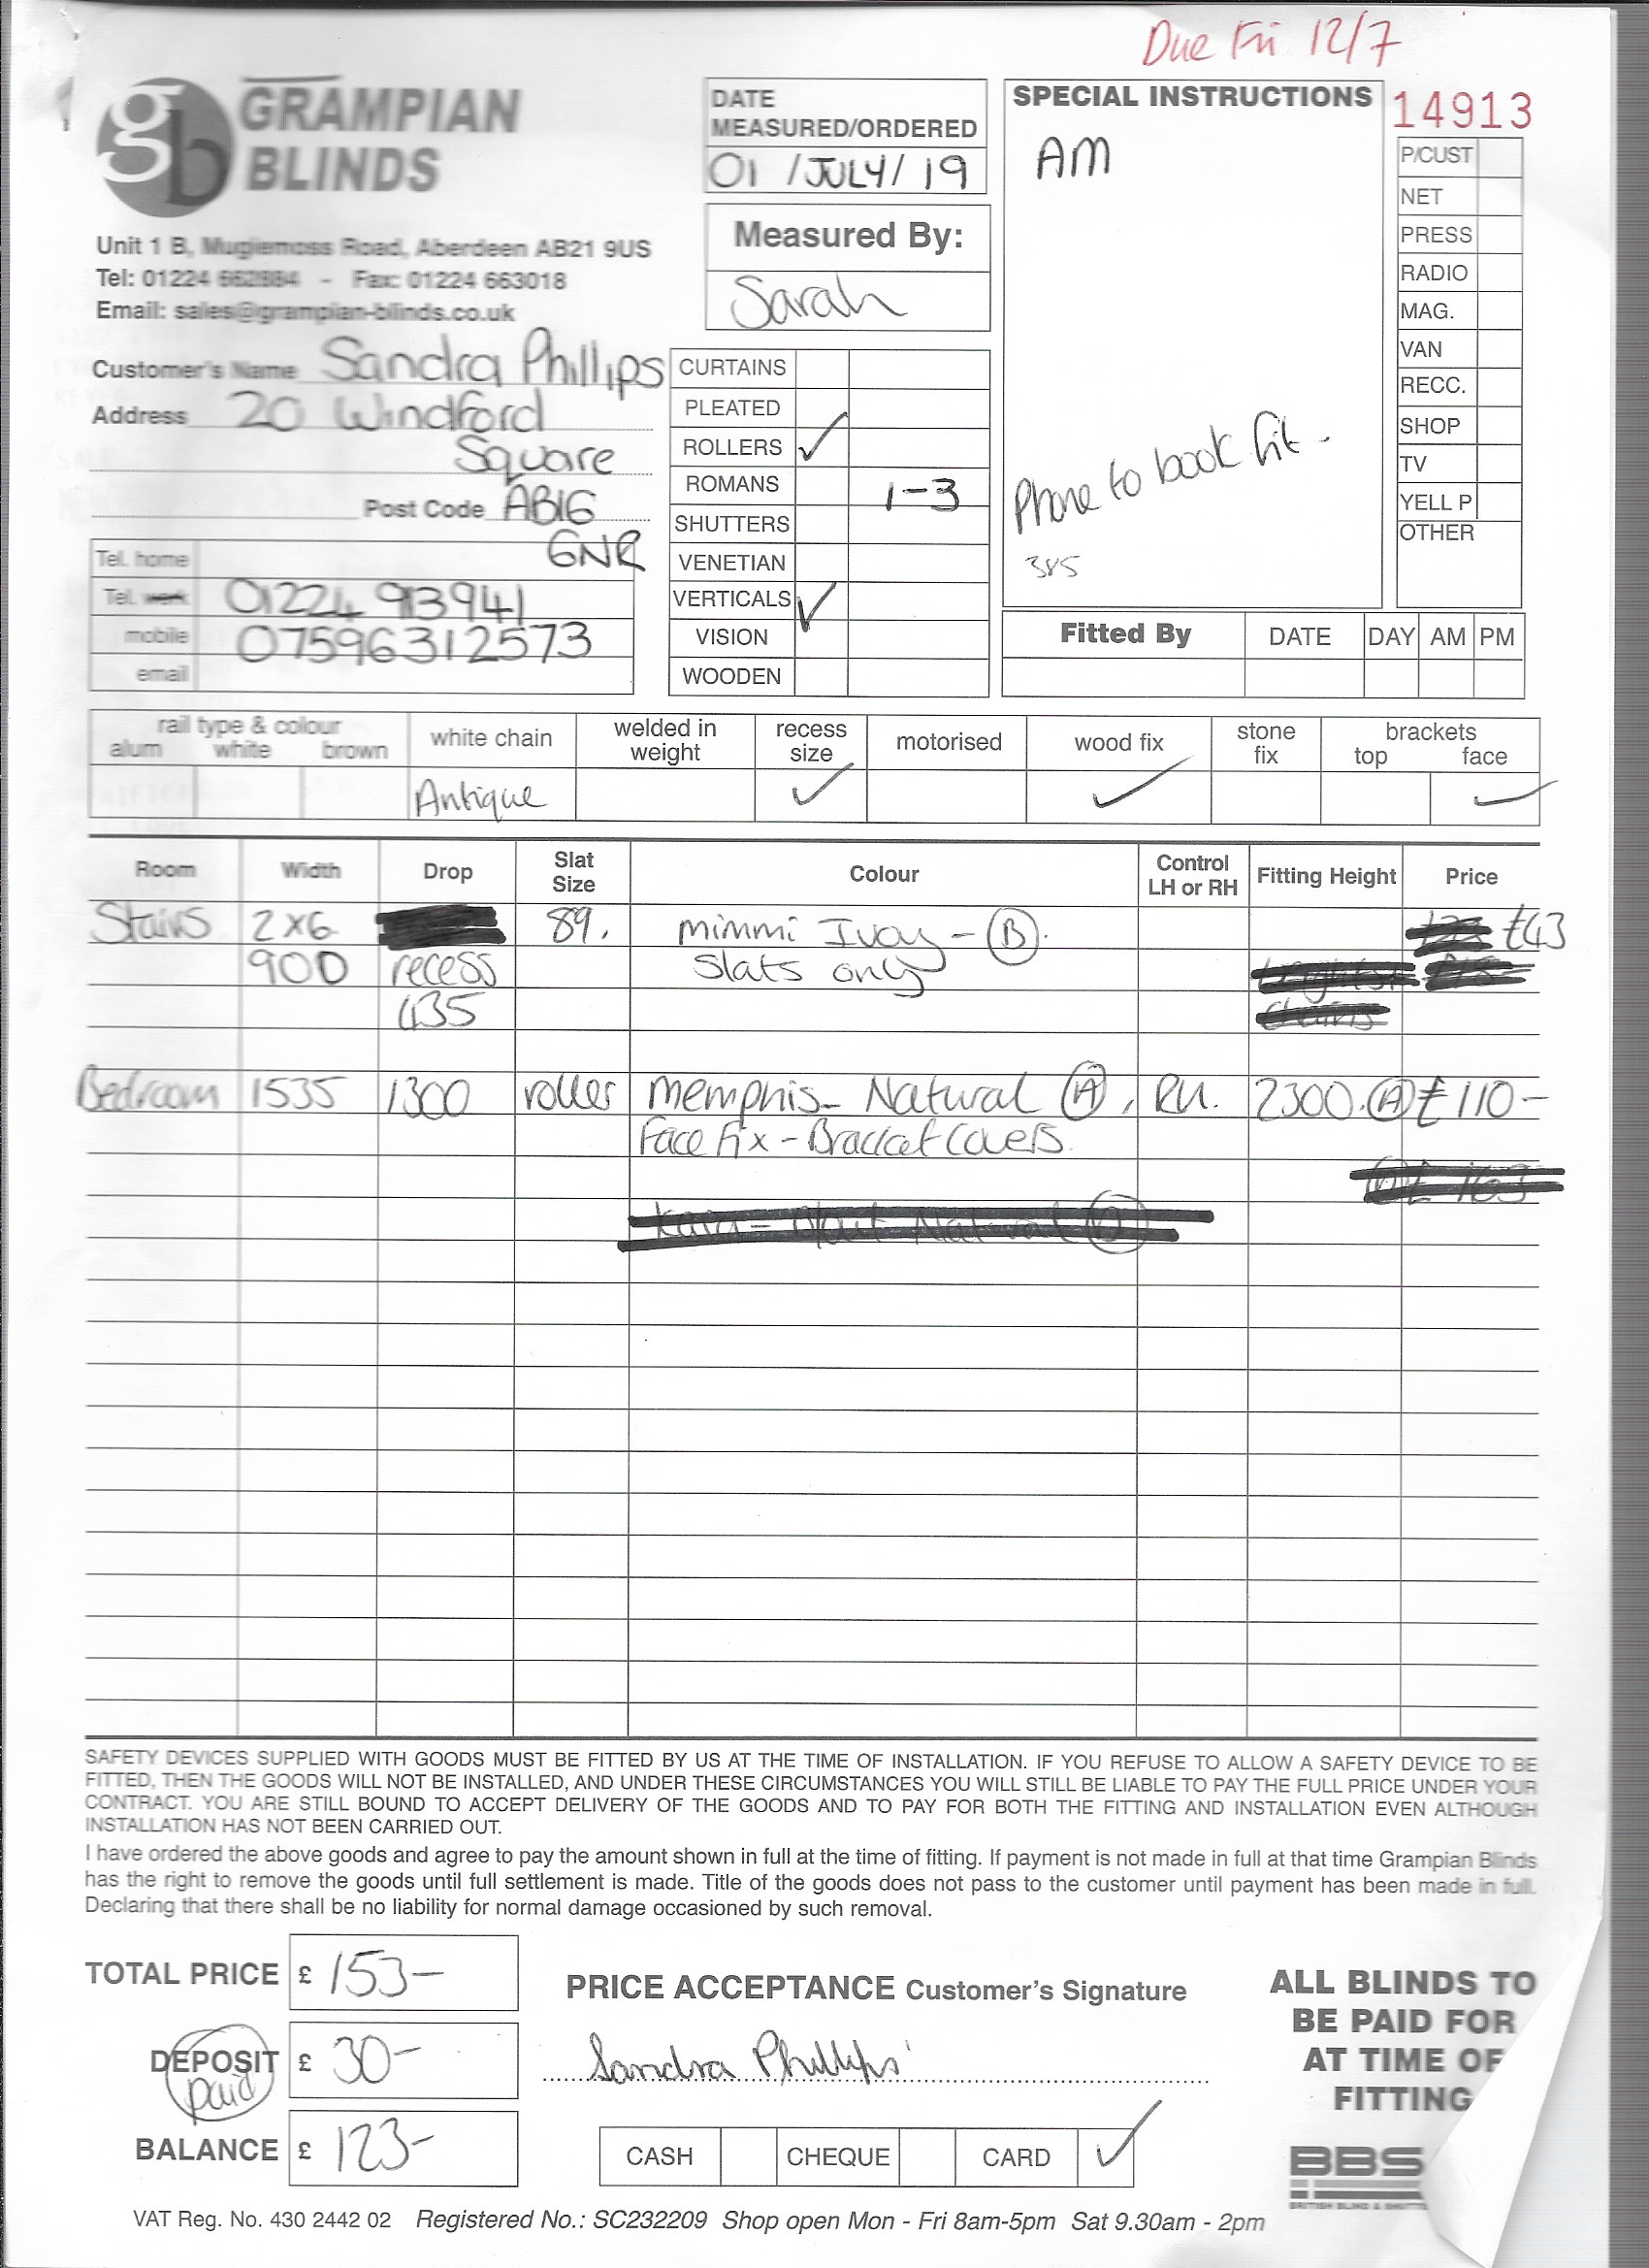 Due Fri 12/7
gb GRAMPIAN
BLINDS
Unit 1 B, Mugiemoss Road, Aberdeen AB21 9US
Tel: 01224 662884 - Fax: 01224 663018
Email: sales@grampian-blinds.co.uk
DATE
MEASURED/ORDERED
01 /JULY/ 19
Measured By:
Sarah
SPECIAL INSTRUCTIONS
AM
Phone to book fit -
385
14913
P/CUST
NET
PRESS
RADIO
MAG.
VAN
RECC.
SHOP
TV
YELL P
OTHER
Customer's Name Sandra Phillips
Address 20 Windford
Square
Post Code AB16
6NR
Tel. home
Tel. work 01224 913941
mobile 07596312573
email
CURTAINS
PLEATED
ROLLERS ✓
ROMANS 1-3
SHUTTERS
VENETIAN
VERTICALS ✓
VISION
WOODEN
Fitted By DATE DAY AM PM
rail type & colour
alum white brown
white chain
Antique
welded in
weight
recess
size
✓
motorised
wood fix
✓
stone
fix
brackets
top face
✓
Room Width Drop Slat Size Colour Control LH or RH Fitting Height Price
Stairs 2x6 89. mimmi Ivory - (B). £43
900 recess slats only
435
Bedroom 1535 1300 roller Memphis - Natural (A), RH. 2300. (A) £110-
Face fix - Bracket Covers.
SAFETY DEVICES SUPPLIED WITH GOODS MUST BE FITTED BY US AT THE TIME OF INSTALLATION. IF YOU REFUSE TO ALLOW A SAFETY DEVICE TO BE
FITTED, THEN THE GOODS WILL NOT BE INSTALLED, AND UNDER THESE CIRCUMSTANCES YOU WILL STILL BE LIABLE TO PAY THE FULL PRICE UNDER YOUR
CONTRACT. YOU ARE STILL BOUND TO ACCEPT DELIVERY OF THE GOODS AND TO PAY FOR BOTH THE FITTING AND INSTALLATION EVEN ALTHOUGH
INSTALLATION HAS NOT BEEN CARRIED OUT.
I have ordered the above goods and agree to pay the amount shown in full at the time of fitting. If payment is not made in full at that time Grampian Blinds
has the right to remove the goods until full settlement is made. Title of the goods does not pass to the customer until payment has been made in full.
Declaring that there shall be no liability for normal damage occasioned by such removal.
TOTAL PRICE £ 153-
DEPOSIT £ 30-
paid
BALANCE £ 123-
PRICE ACCEPTANCE Customer's Signature
Sandra Phillips
CASH CHEQUE CARD ✓
ALL BLINDS TO
BE PAID FOR
AT TIME OF
FITTING
BBS
VAT Reg. No. 430 2442 02 Registered No.: SC232209 Shop open Mon - Fri 8am-5pm Sat 9.30am - 2pm